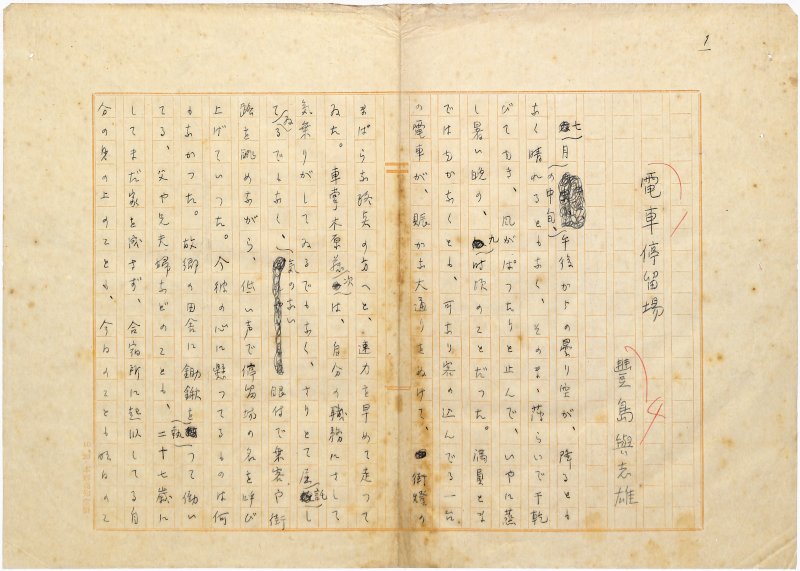 1
電車停留場
4
豐島與志雄
七月の中旬、午後からの曇り空が、降るとも
なく晴れるともなく、そのまゝ薄らいで干乾
びてゆき、風がぱつたりと止んで、いやに蒸
し暑い晩の、九時頃のことだつた。満員とま
ではゆかなくとも、可なり客の込んでる一台
の電車が、賑かな大通りをぬけて、街燈の
まばらな終点の方へと、速力を早めて走つて
ゐた。車掌木原藤次は、自分の職務にさして
気乗りがしてゐるでもなく、さりとて屈託し
てゐるでもなく、気のない眼付で乗客や街
路を眺めながら、低い声で停留場の名を呼び
上げていつた。今彼の心に懸つてるものは何
もなかつた。故郷の田舎に鋤鍬を執つて働い
てる、父や兄夫婦などのことも、二十七歳に
してまだ家を成さず、合宿所に起臥してる自
分の身の上のことも、今日のことも明日のこ